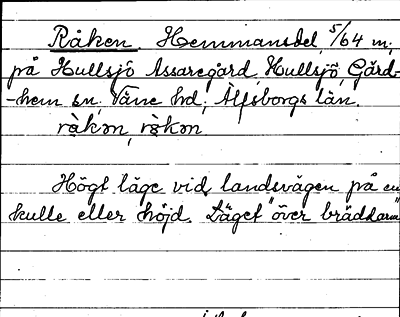 Råken. Hemmansdel 5/64 m;
på Hullsjö Assaregård, Hullsjö, Gärd-
-hem sn, Väne hd, Älfsborgs län.
rå̀kən, rə̀kən
Högt läge vid landsvägen på en
kulle eller höjd. Läget "över bräddarna"